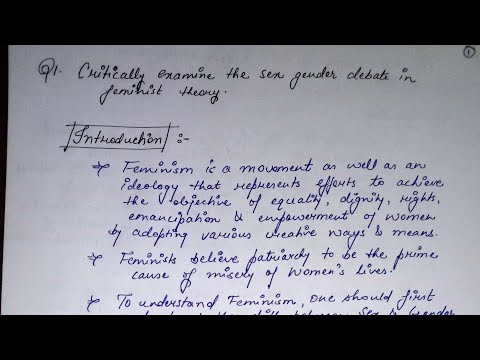 1
Q1. Critically examine the sex gender debate in
feminist theory.
Introduction :-
Feminism is a movement as well as an
ideology that represents efforts to achieve
the objective of equality, dignity, rights,
emancipation & empowerment of women
by adopting various creative ways & means.
Feminists believe patriarchy to be the prime
cause of misery of women's lives.
To understand Feminism, one should first
between Sex & Gender